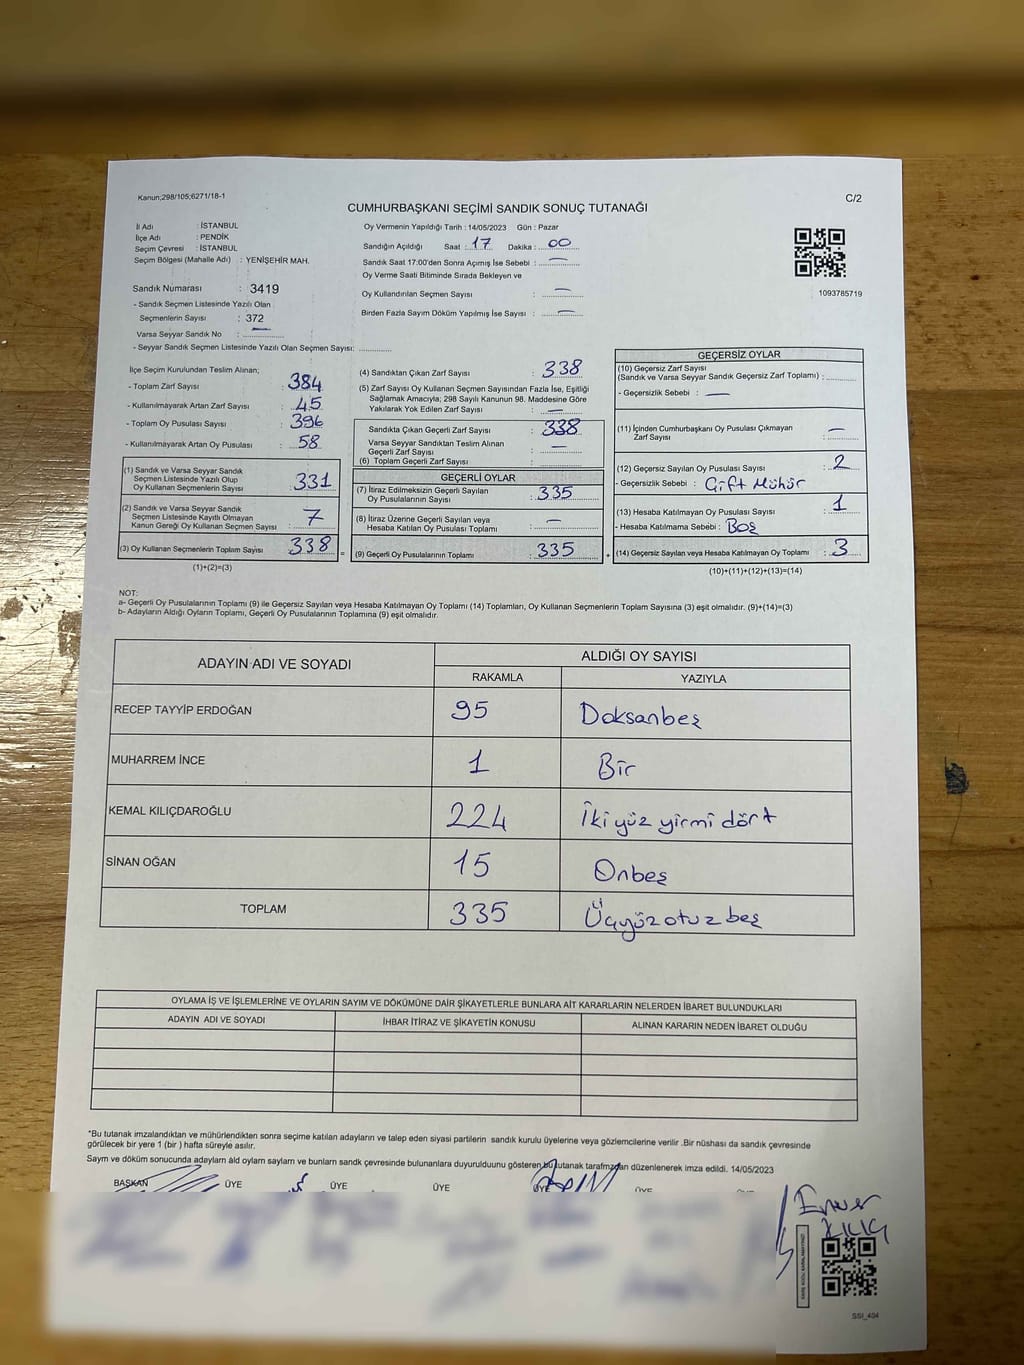 Kanun;298/105;6271/18-1
C/2
CUMHURBAŞKANI SEÇİMİ SANDIK SONUÇ TUTANAĞI
İl Adı : İSTANBUL
İlçe Adı : PENDİK
Seçim Çevresi : İSTANBUL
Seçim Bölgesi (Mahalle Adı) : YENİŞEHİR MAH.
Sandık Numarası : 3419
- Sandık Seçmen Listesinde Yazılı Olan
Seçmenlerin Sayısı : 372
Varsa Seyyar Sandık No : —
- Seyyar Sandık Seçmen Listesinde Yazılı Olan Seçmen Sayısı:
Oy Vermenin Yapıldığı Tarih : 14/05/2023 Gün : Pazar
Sandığın Açıldığı Saat : 17 Dakika : 00
Sandık Saat 17:00'den Sonra Açımış İse Sebebi : —
Oy Verme Saati Bitiminde Sırada Bekleyen ve
Oy Kullandırılan Seçmen Sayısı : —
Birden Fazla Sayım Döküm Yapılmış İse Sayısı : —
1093785719
İlçe Seçim Kurulundan Teslim Alınan;
- Toplam Zarf Sayısı : 384
- Kullanılmayarak Artan Zarf Sayısı : 45
- Toplam Oy Pusulası Sayısı : 396
- Kullanılmayarak Artan Oy Pusulası : 58
(1) Sandık ve Varsa Seyyar Sandık
Seçmen Listesinde Yazılı Olup
Oy Kullanan Seçmenlerin Sayısı : 331
(2) Sandık ve Varsa Seyyar Sandık
Seçmen Listesinde Kayıtlı Olmayan
Kanun Gereği Oy Kullanan Seçmen Sayısı : 7
(3) Oy Kullanan Seçmenlerin Toplam Sayısı : 338
(1)+(2)=(3)
(4) Sandıktan Çıkan Zarf Sayısı : 338
(5) Zarf Sayısı Oy Kullanan Seçmen Sayısından Fazla İse, Eşitliği
Sağlamak Amacıyla; 298 Sayılı Kanunun 98. Maddesine Göre
Yakılarak Yok Edilen Zarf Sayısı : —
Sandıkta Çıkan Geçerli Zarf Sayısı : 338
Varsa Seyyar Sandıktan Teslim Alınan
Geçerli Zarf Sayısı : —
(6) Toplam Geçerli Zarf Sayısı :
GEÇERLİ OYLAR
(7) İtiraz Edilmeksizin Geçerli Sayılan
Oy Pusulalarının Sayısı : 335
(8) İtiraz Üzerine Geçerli Sayılan veya
Hesaba Katılan Oy Pusulası Toplamı : —
=
(9) Geçerli Oy Pusulalarının Toplamı : 335
+
GEÇERSİZ OYLAR
(10) Geçersiz Zarf Sayısı
(Sandık ve Varsa Seyyar Sandık Geçersiz Zarf Toplamı) :
- Geçersizlik Sebebi : —
(11) İçinden Cumhurbaşkanı Oy Pusulası Çıkmayan
Zarf Sayısı : —
(12) Geçersiz Sayılan Oy Pusulası Sayısı : 2
- Geçersizlik Sebebi : Çift Mühür
(13) Hesaba Katılmayan Oy Pusulası Sayısı : 1
- Hesaba Katılmama Sebebi : Boş
(14) Geçersiz Sayılan veya Hesaba Katılmayan Oy Toplamı : 3
(10)+(11)+(12)+(13)=(14)
NOT:
a- Geçerli Oy Pusulalarının Toplamı (9) ile Geçersiz Sayılan veya Hesaba Katılmayan Oy Toplamı (14) Toplamları, Oy Kullanan Seçmenlerin Toplam Sayısına (3) eşit olmalıdır. (9)+(14)=(3)
b- Adayların Aldığı Oyların Toplamı, Geçerli Oy Pusulalarının Toplamına (9) eşit olmalıdır.
ADAYIN ADI VE SOYADI
ALDIĞI OY SAYISI
RAKAMLA YAZIYLA
RECEP TAYYİP ERDOĞAN 95 Doksanbeş
MUHARREM İNCE 1 Bir
KEMAL KILIÇDAROĞLU 224 İkiyüz yirmi dört
SİNAN OĞAN 15 Onbeş
TOPLAM 335 Üçyüzotuzbeş
OYLAMA İŞ VE İŞLEMLERİNE VE OYLARIN SAYIM VE DÖKÜMÜNE DAİR ŞİKAYETLERLE BUNLARA AİT KARARLARIN NELERDEN İBARET BULUNDUKLARI
ADAYIN ADI VE SOYADI İHBAR İTİRAZ VE ŞİKAYETİN KONUSU ALINAN KARARIN NEDEN İBARET OLDUĞU
*Bu tutanak imzalandıktan ve mühürlendikten sonra seçime katılan adayların ve talep eden siyasi partilerin sandık kurulu üyelerine veya gözlemcilerine verilir .Bir nüshası da sandık çevresinde
görülecek bir yere 1 (bir ) hafta süreyle asılır.
Sayım ve döküm sonucunda adayların ald oyların sayların ve bunların sandk çevresinde bulunanlara duyurulduunu gösteren bu tutanak tarafmzdan düzenlenerek imza edildi. 14/05/2023
BAŞKAN ÜYE ÜYE ÜYE ÜYE ÜYE
Enver
KILIÇ
SSI_404